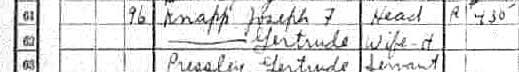 61 96 Knapp Joseph F Head R $430
62 —— Gertrude Wife-H
63 Pressley Gertrude Servant